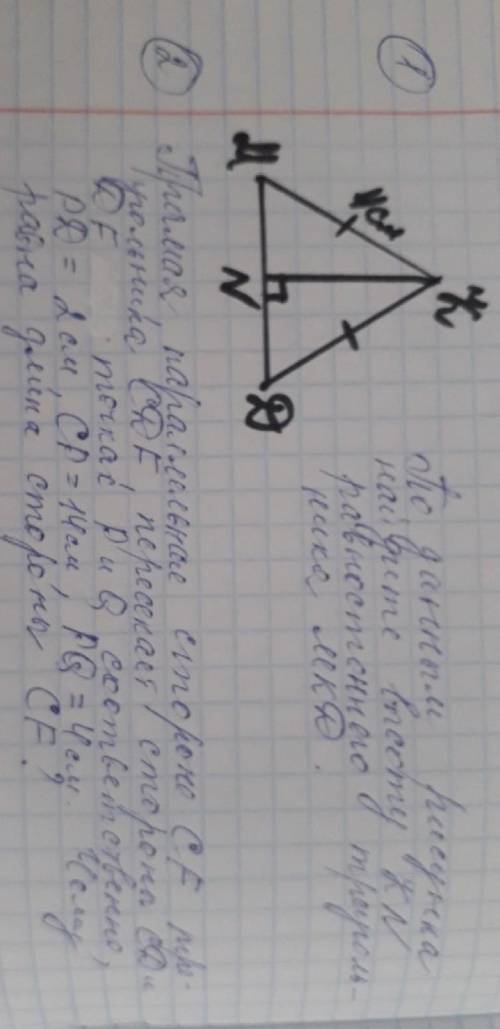 1
М
4см
К
N
D
По данным рисунка
найдите высоту KN
равностеннего треуголь-
ника МКD.
2
Прямая, параллельная стороне CF тре-
угольника CDF пересекает стороны CD и
DF точках P и Q соответственно,
PD = 2 см, CP = 14 см, PQ = 4 см. Чему
равна длина стороны CF?